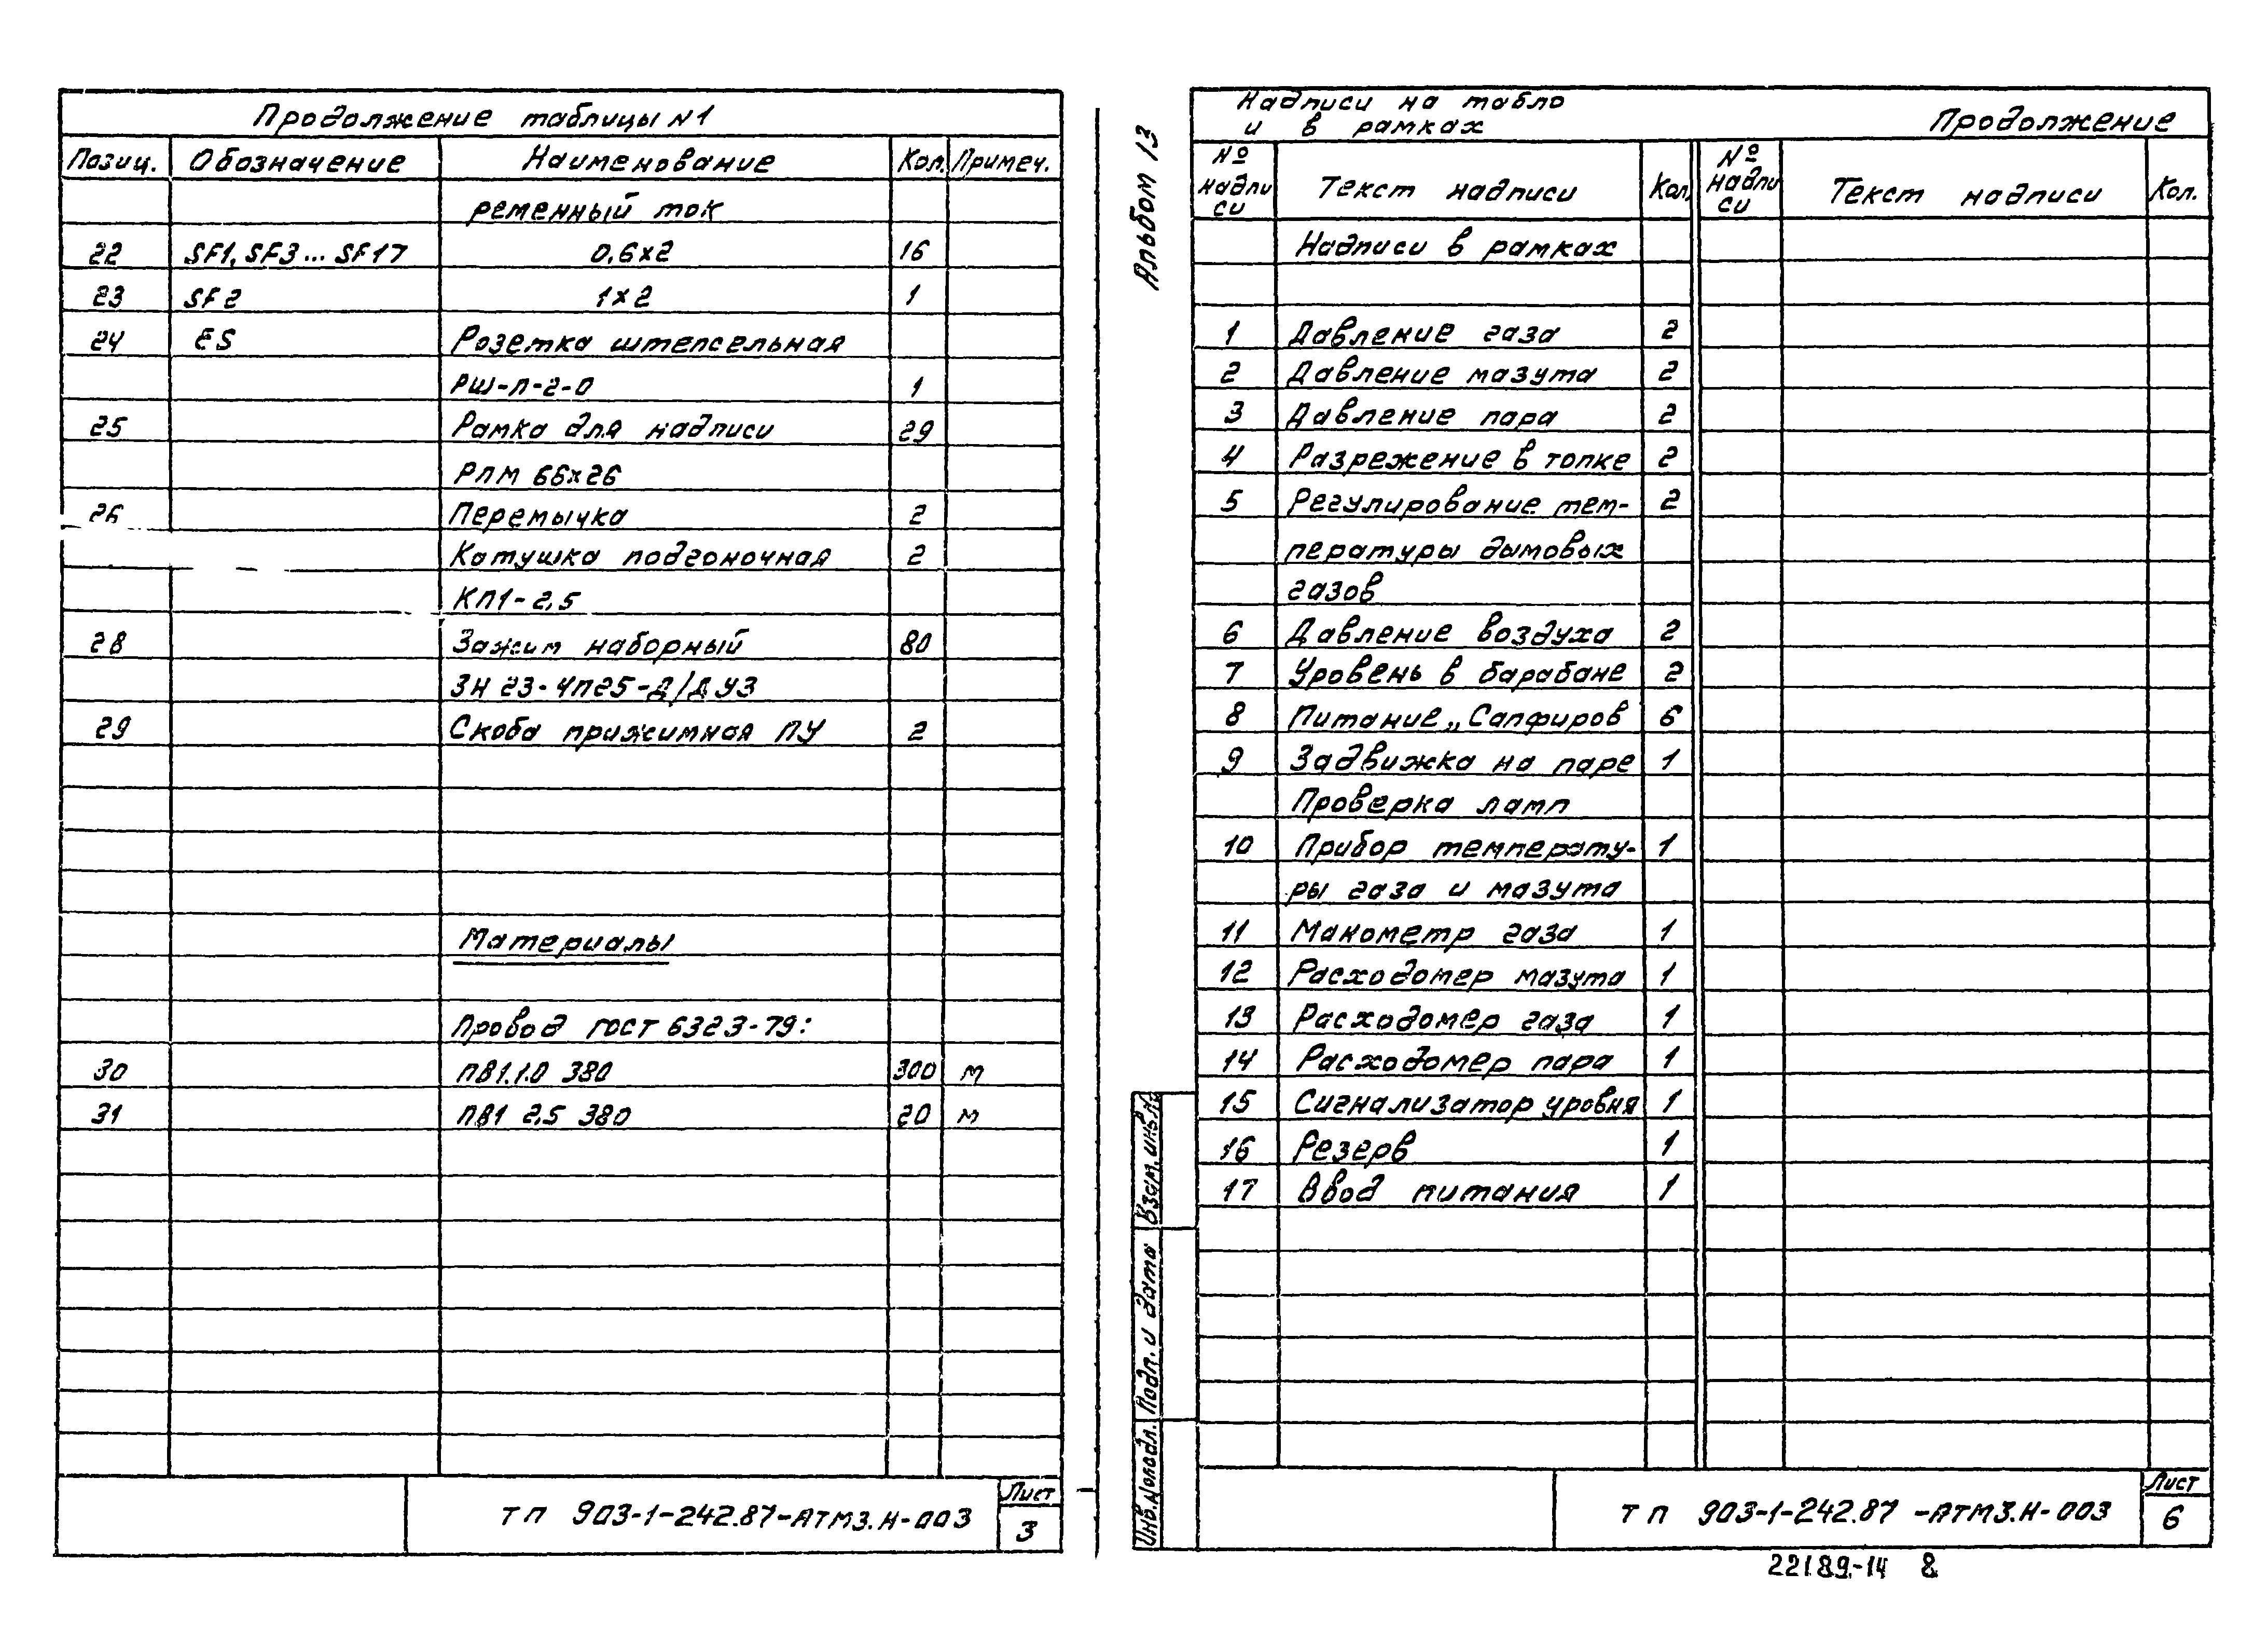 Продолжение таблицы N1
Позиц. Обозначение Наименование Кол. Примеч.
ременный ток
22 SF1, SF3 ... SF17 0,6х2 16
23 SF2 1х2 1
24 ES Розетка штепсельная
РШ-П-2-0 1
25 Рамка для надписи 29
РПМ 66х26
26 Перемычка 2
Катушка подгоночная 2
КП1-2,5
28 Зажим наборный 80
ЗН 23-4П25-Д/Д У3
29 Скоба прижимная ПУ 2
Материалы
Провод ГОСТ 6323-79:
30 ПВ1.1.0 380 300 м
31 ПВ1 2,5 380 20 м
ТП 903-1-242.87-АТМ3.Н-003
Лист
3
Альбом 13
Надписи на табло
и в рамках
Продолжение
№ надпи си Текст надписи Кол. № надпи си Текст надписи Кол.
Надписи в рамках
1 Давление газа 2
2 Давление мазута 2
3 Давление пара 2
4 Разрежение в топке 2
5 Регулирование тем- 2
пературы дымовых
газов
6 Давление воздуха 2
7 Уровень в барабане 2
8 Питание „Сапфиров 6
9 Задвижка на паре 1
Проверка ламп
10 Прибор температу- 1
ры газа и мазута
11 Манометр газа 1
12 Расходомер мазута 1
13 Расходомер газа 1
14 Расходомер пара 1
15 Сигнализатор уровня 1
16 Резерв 1
17 Ввод питания 1
Взам. инв. №
Подп. и дата
Инв. № подл.
ТП 903-1-242.87 -АТМ3.Н-003
Лист
6
22189-14 8